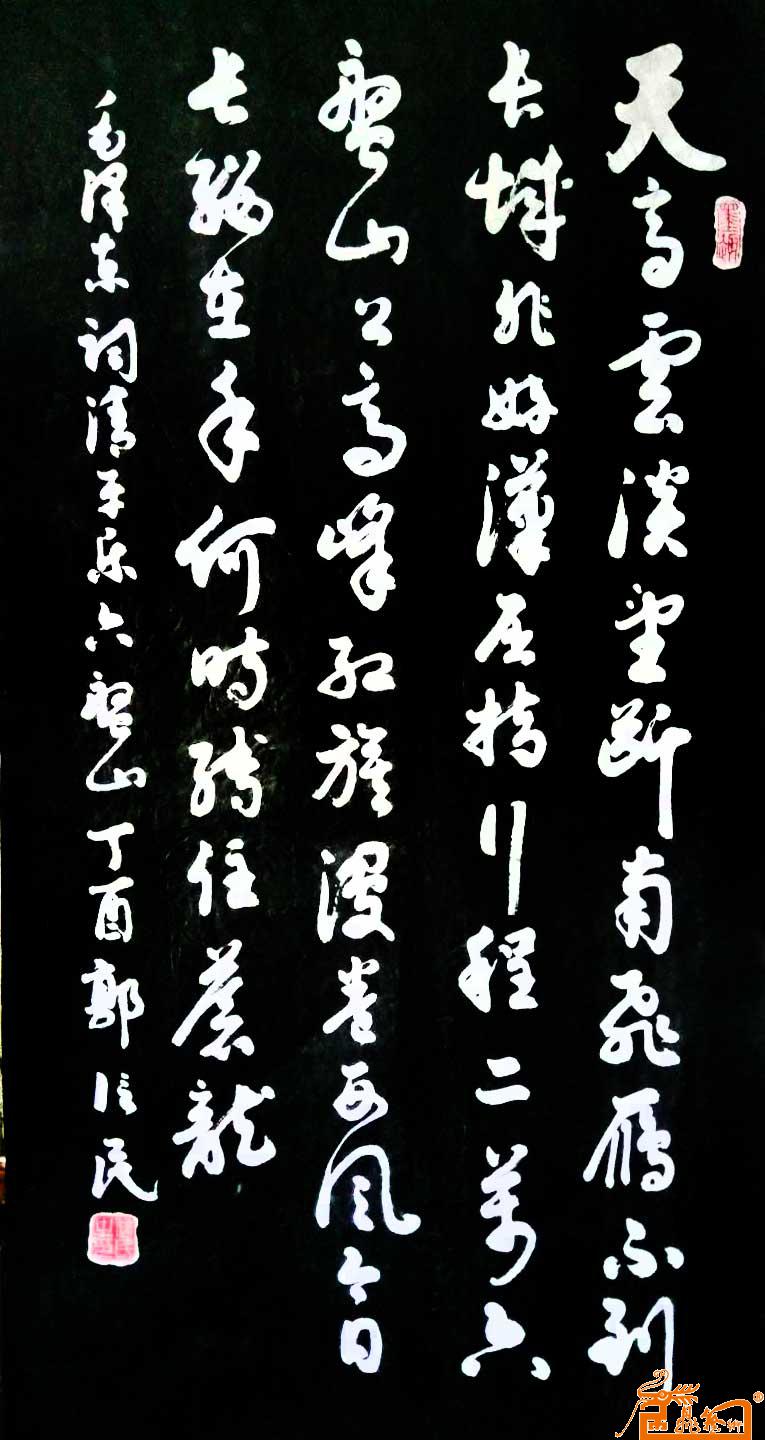 天高雲淡望斷南飛雁不到
长城非好漢屈指行程二萬六
盤山上高峰红旗漫卷西風今日
长缨在手何時缚住蒼龍
毛泽东词清平乐六盤山丁酉郭信民